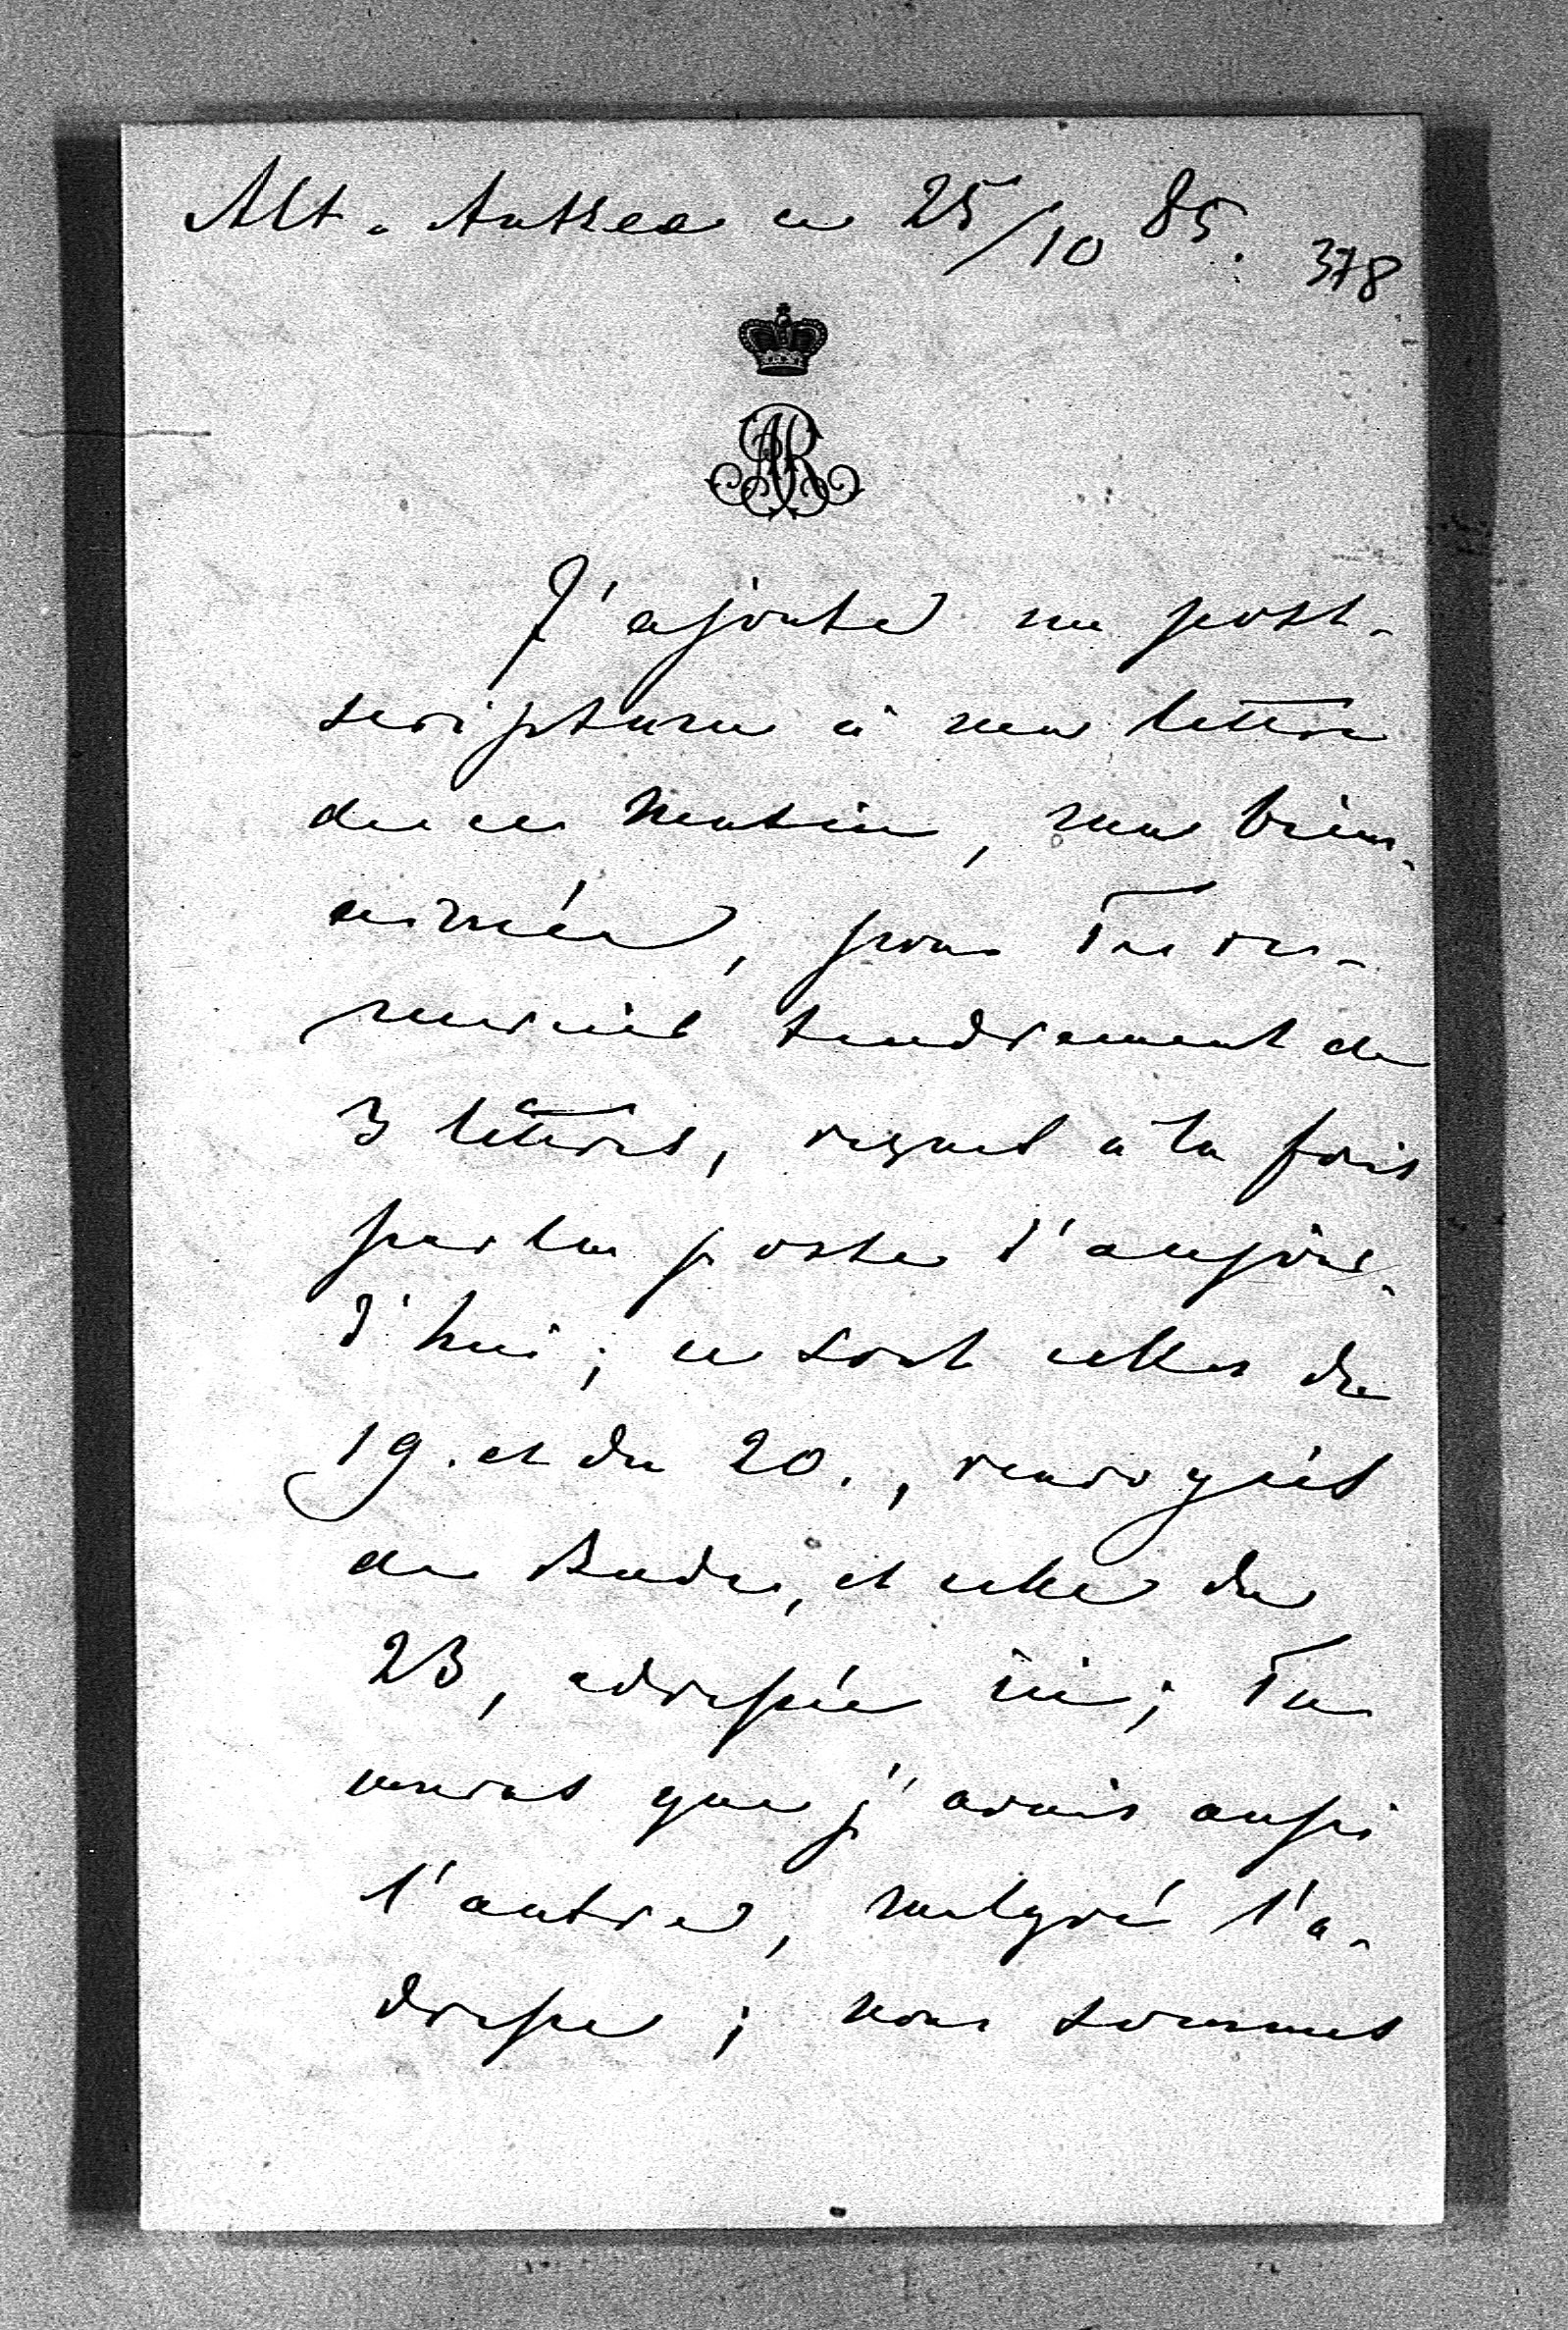 Alt-Aussee ce 25/10 85.
378
AR
J'ajoute un post-
scriptum à ma lettre
de ce matin, ma bien-
aimée, pour Te re-
mercier tendrement de
3 lettres, reçues à la fois
par la poste d'aujour-
d'hui; ce sont celles du
19. et du 20., renvoyées
de Bude, et celle du
23, adressée ici; Tu
verras que j'avais aussi
l'autre, malgré l'a-
dresse; nous sommes